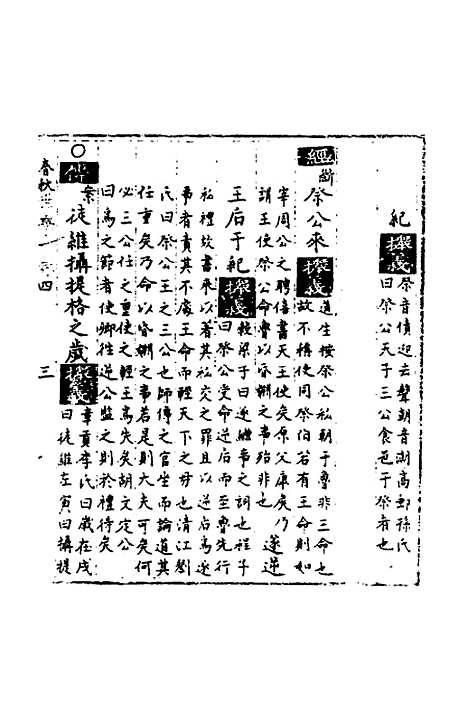 紀 探義 祭音債迎去聲朝音潮高郵孫氏
曰祭公天子三公食邑于祭者也
經
斷 祭公來 探義 道生按祭公私朝于魯非三命也
故不稱使同祭伯若有王命則如
宰周公之聘僖書天王使矣原父庫矣乃 遂逆
謂王使祭公命魯以昏媾之事殆非也
王后于紀 探義 穀梁子曰遂繼事之詞也程子
曰祭公受命逆后而至魯先行
私禮故書來以著其私交之罪且以逆后為遂
事者責其不虔王命而輕天下之母也清江劉
氏曰祭公王之三公也師傅之官坐而論道其
任重矣乃命以昏媾之事若是則大夫可矣何
必三公任之重使之輕王為失矣胡文定公
曰為之節者使卿往逆公監之則於禮得矣
○
傳
案 徒維攝提格之歲 探義 章貢李氏曰歲在戌
曰徒維在寅曰攝提
春秋 四 三